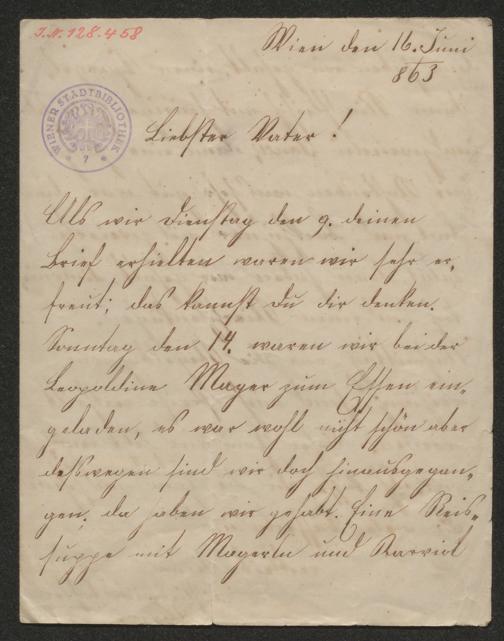 I.N. 128.458
Wien den 16. Juni
863
WIENER STADTBIBLIOTHEK
7
Liebster Vater!
Als wir Dienstag den 9. deinen
Brief erhielten waren wir sehr er„
freut; das kannst Du dir denken.
Sonntag den 14. waren wir bei der
Leopoldine Mayer zum Essen ein„
geladen, es war wohl nicht schön aber
deßwegen sind wir doch hinausgegan„
gen, da haben wir gehabt. Eine Reis„
suppe mit Magerln und Karviol